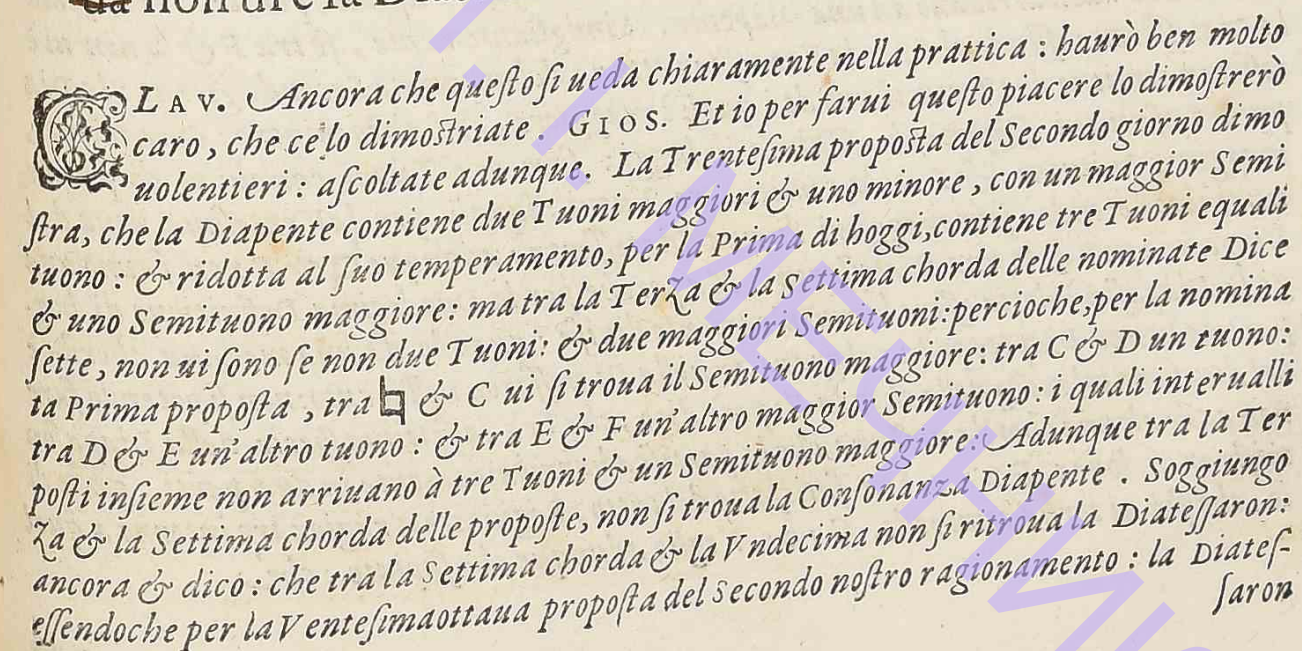 da non dire la
CLAV. Ancora che questo si ueda chiaramente nella prattica : haurò ben molto
caro, che ce lo dimostriate. GIOS. Et io per farui questo piacere lo dimostrerò
uolentieri : ascoltate adunque. La Trentesima proposta del Secondo giorno dimo
stra, che la Diapente contiene due Tuoni maggiori & uno minore, con un maggior Semi
tuono : & ridotta al suo temperamento, per la Prima di hoggi, contiene tre Tuoni equali
& uno Semituono maggiore: ma tra la Terza & la Settima chorda delle nominate Dice
sette, non ui sono se non due Tuoni: & due maggiori Semituoni: percioche, per la nomina
ta Prima proposta, tra ♮ & C ui si troua il Semituono maggiore: tra C & D un tuono:
tra D & E un'altro tuono : & tra E & F un'altro maggior Semituono: i quali interualli
posti insieme non arriuano à tre Tuoni & un Semituono maggiore: Adunque tra la Ter
za & la Settima chorda delle proposte, non si troua la Consonanza Diapente. Soggiungo
ancora & dico : che tra la Settima chorda & la Vndecima non si ritroua la Diatessaron:
essendoche per la Ventesimaottaua proposta del Secondo nostro ragionamento : la Diates-
saron